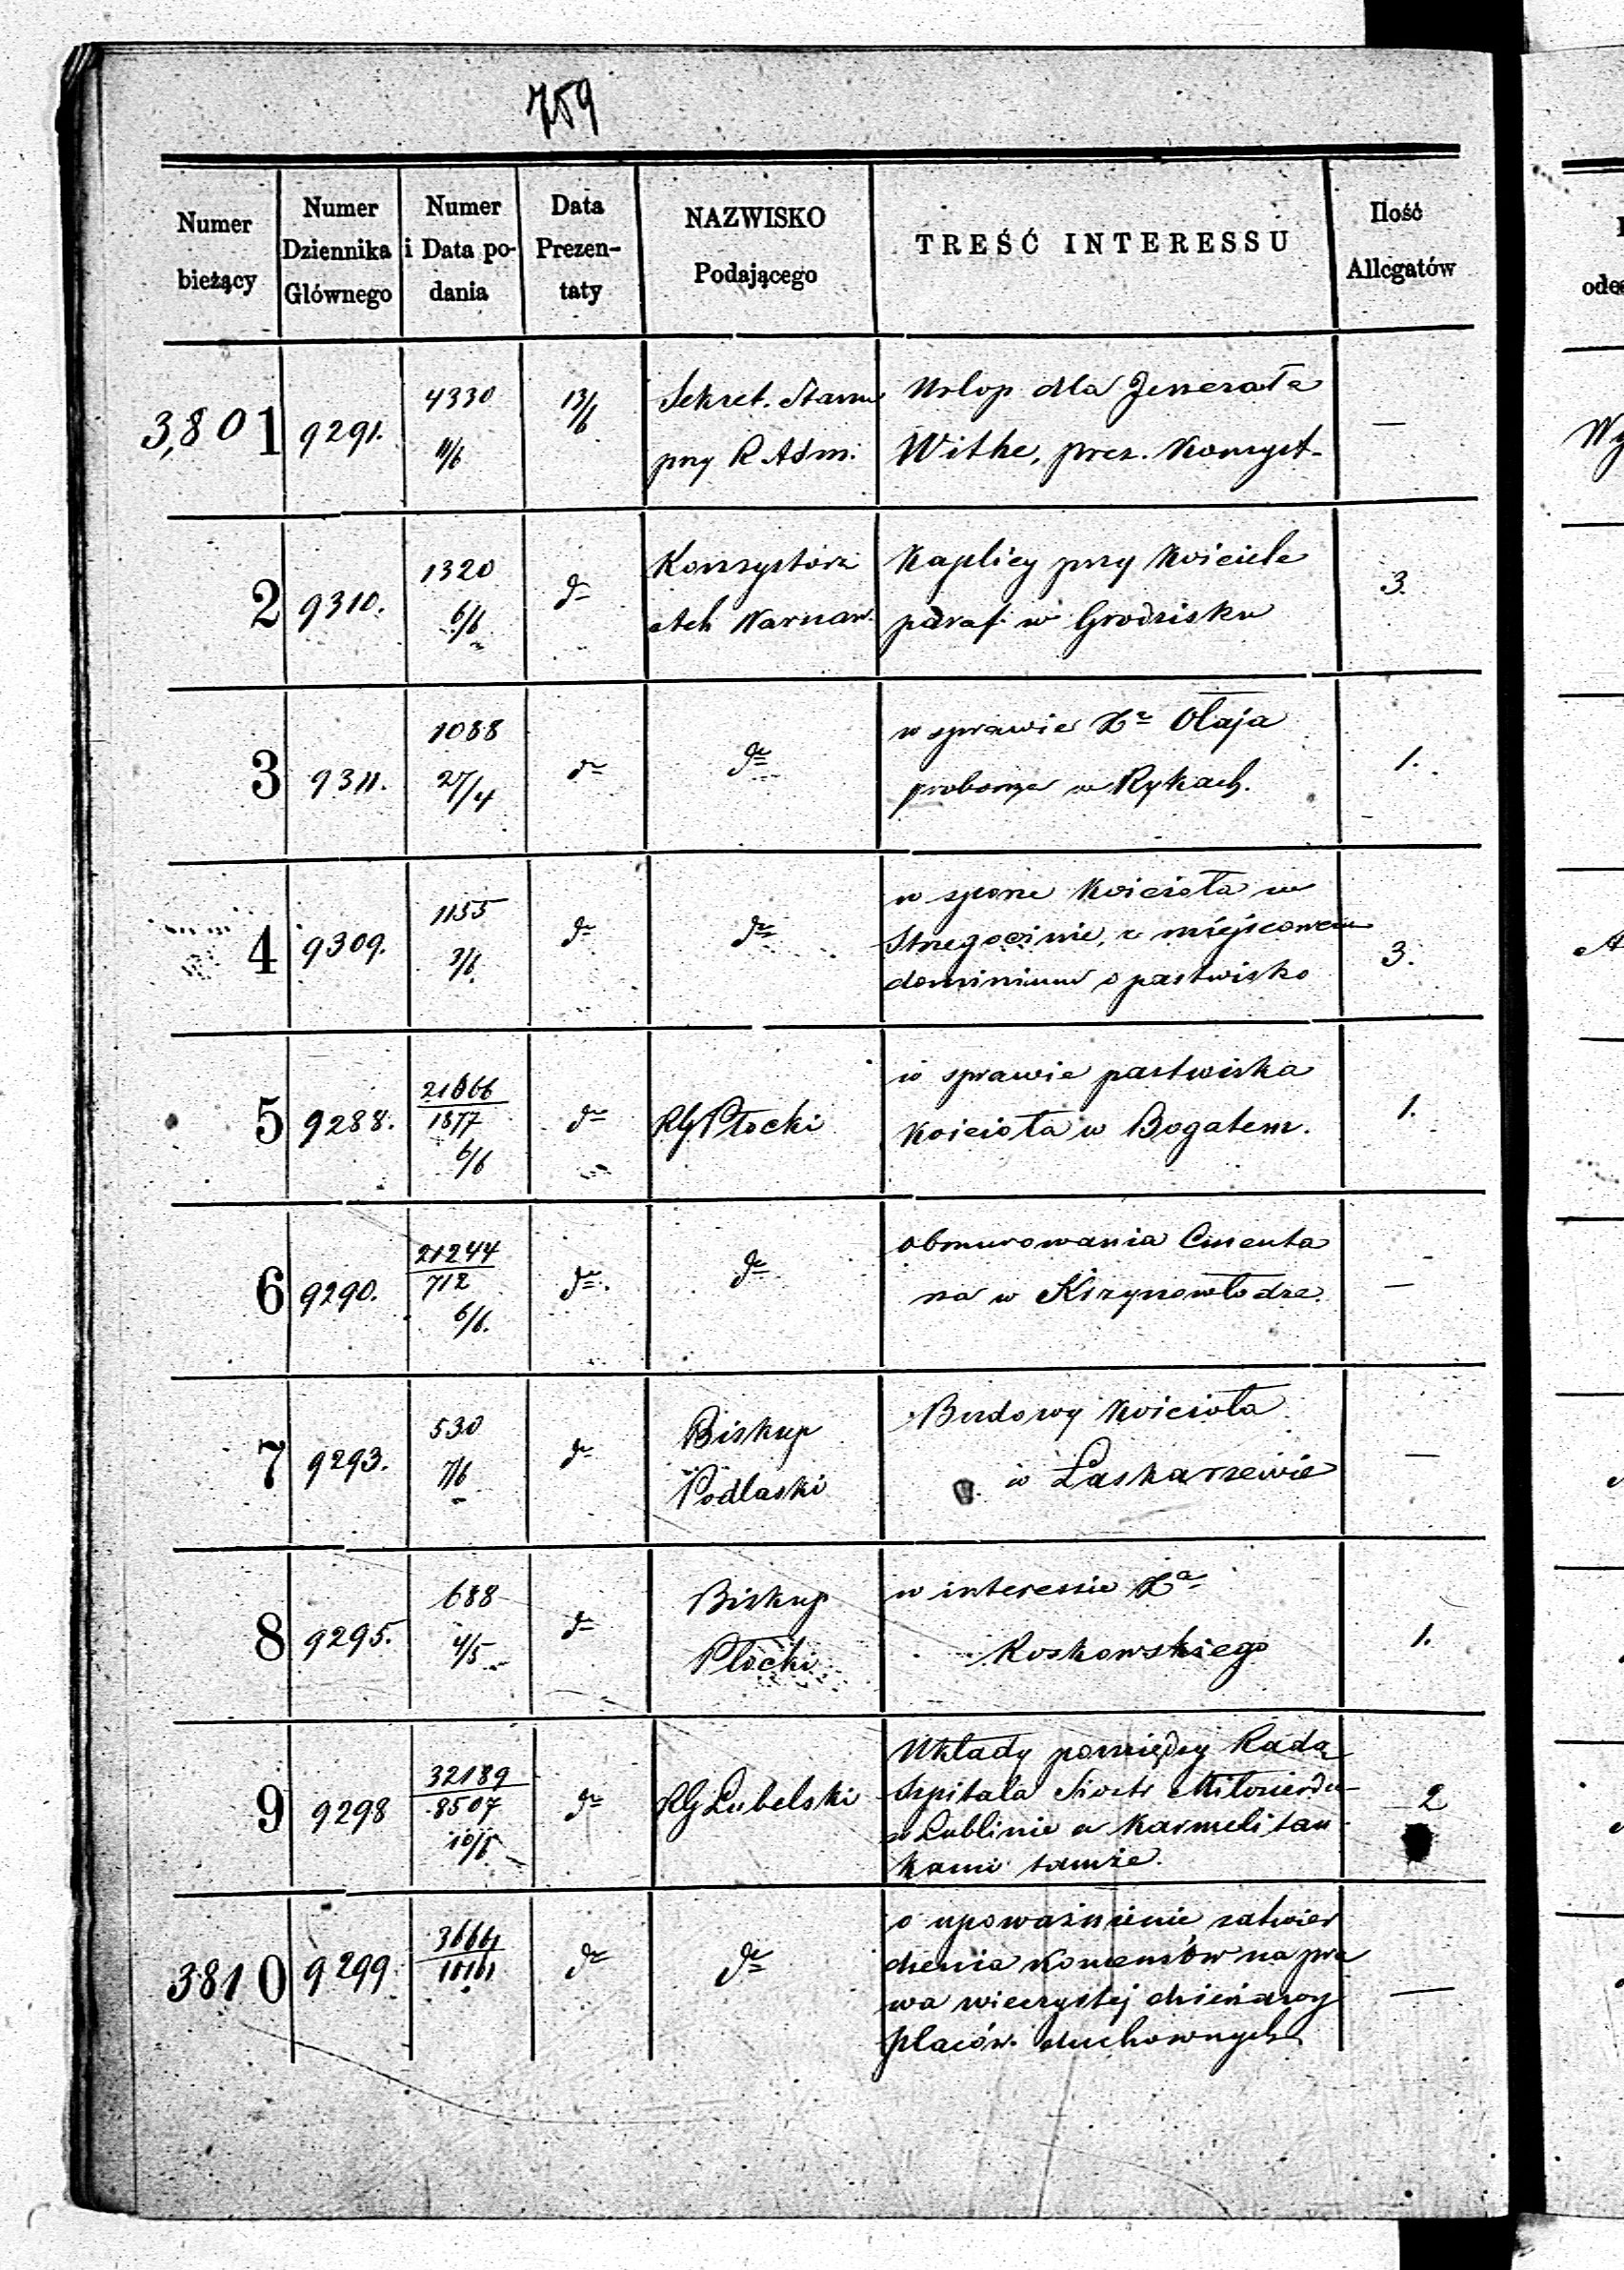 759
Numer bieżący
Numer Dziennika Głównego
Numer i Data podania
Data Prezentaty
NAZWISKO Podającego
TREŚĆ INTERESSU
Ilość Allegatów
3,801 9291. 4330 11/6 13/6
Sekret. Stanu
przy R Adm.
Urlop dla Jenerała
Witke, prez. Komyst.
—
2 9310. 1320 6/6 do
Konsystorz
Ach Warszaw.
Kaplicy przy Kościele
paraf. w Grodzisku
3.
3 9311. 1088 27/4 do do
w sprawie Xa Otaja
proboszcza w Rykach.
1.
4 9309. 1155 3/6. do do
w sporze Kościoła w
Strzegocinie, z miejscowem
dominium o pastwisko
3.
5 9288. 21666
1877
6/6 do RG Płocki
w sprawie pastwiska
Kościoła w Bogatem.
1.
6 9290. 21244
712
6/6. do do
obmurowania Cmenta
na w Krzynowłodze
—
7 9293. 530 7/6 do
Biskup
Podlaski
Budowy Kościoła
w Łaskarzewie
—
8 9295. 688 4/5 do
Biskup
Płocki
w interessie Xa
Roskowskiego
1.
9 9298 32189
8507
10/6 do RG Lubelski
Układy pomiędzy Radą
Szpitala Siostr Miłosierdz
w Lublinie a Karmelitan
kami tamże.
2
3810 9299. do do
o upoważnienie zatwier
dzenia Konensów na pra
wa wieczystej dzierżawy
placów duchownych
—